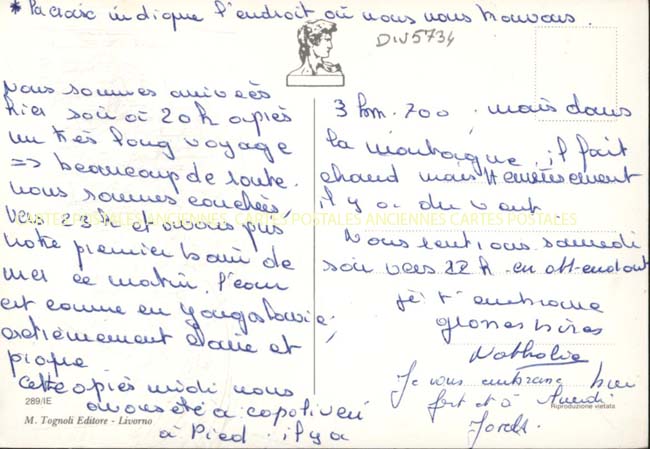 * La croix indique l'endroit où nous nous trouvons.
DIV5734
nous sommes arrivées
hier soir à 20h après
un très long voyage
=> beaucoup de route.
nous sommes couchées
vers 23h et avons pris
notre premier bain de
mer ce matin, l'eau
est comme en Yougoslavie,
extrêmement claire et
propre
Cette après midi nous
avons été a capoliveri
à Pied. il y a
3 km.700, mais dans
la montagne, il fait
chaud mais
il y a du vent.
Nous rentrons samedi
soir vers 22h en attendant
je t'embrasse
grosses bises
Nathalie
Je vous embrasse bien
fort et à
CARTES POSTALES ANCIENNES CARTES POSTALES ANCIENNES CARTES POSTALES
289/IE
M. Tognoli Editore - Livorno
Riproduzione vietata